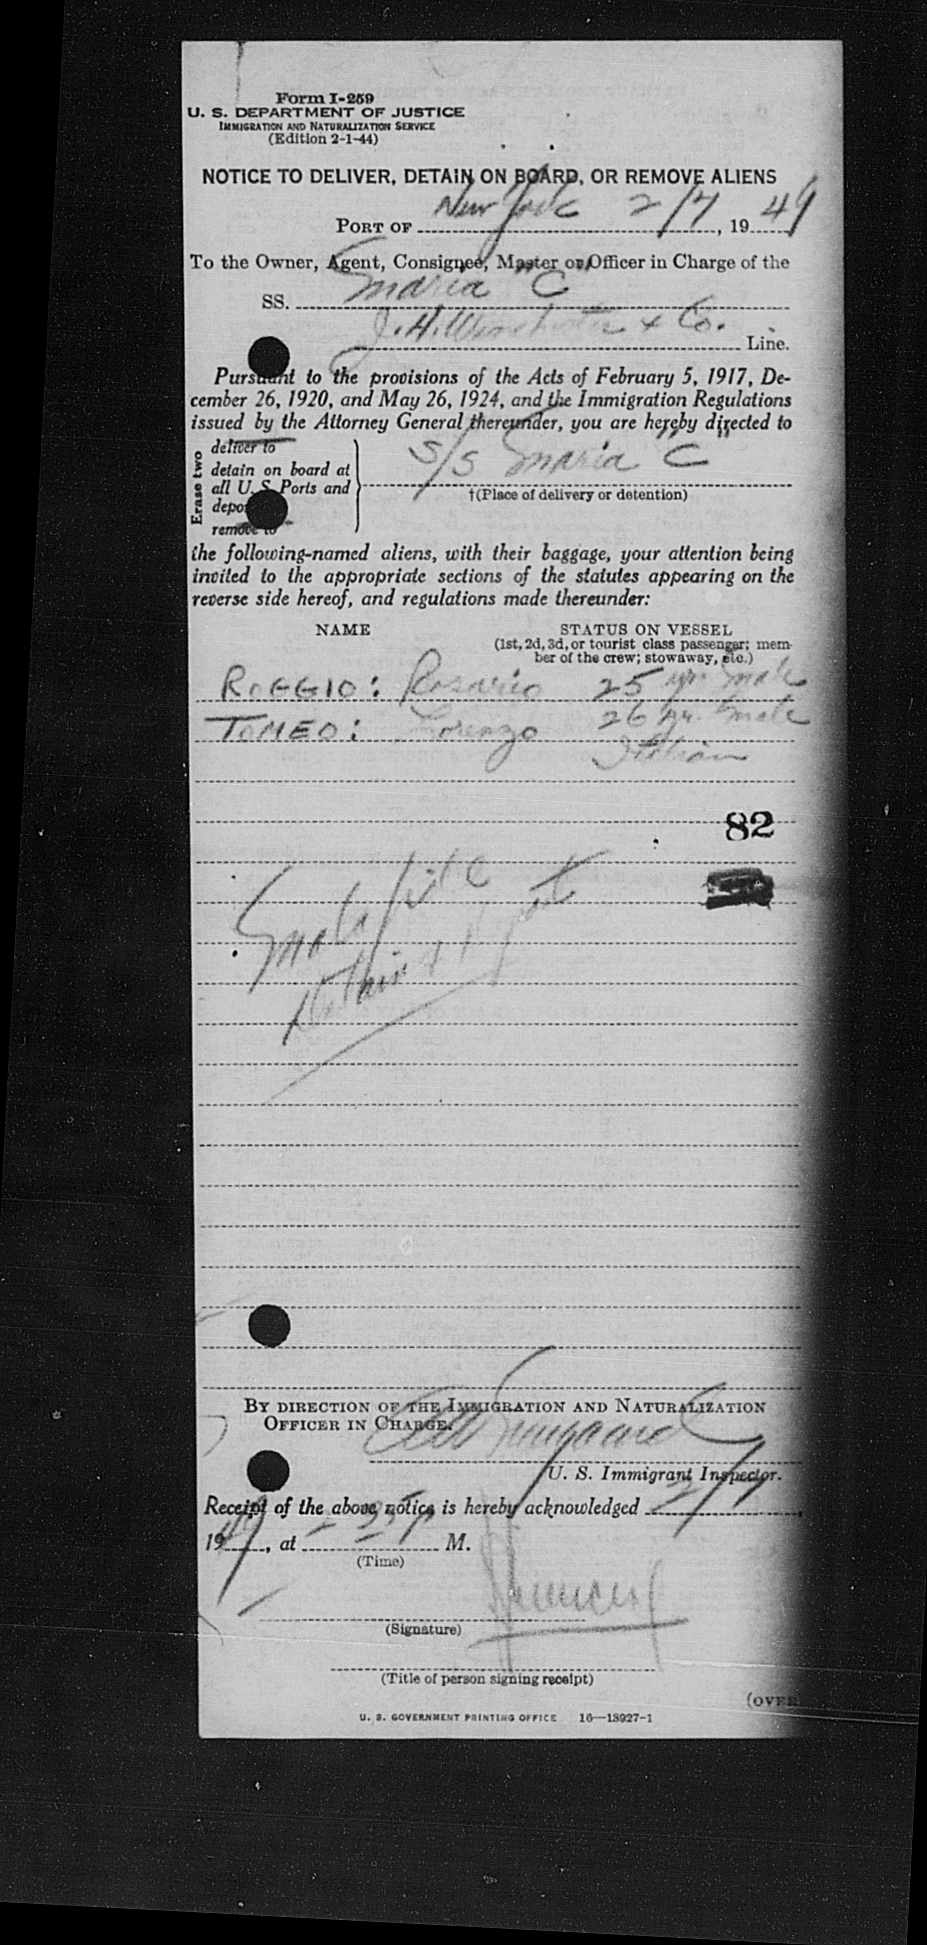 Form I-259
U. S. DEPARTMENT OF JUSTICE
IMMIGRATION AND NATURALIZATION SERVICE
(Edition 2-1-44)
NOTICE TO DELIVER, DETAIN ON BOARD, OR REMOVE ALIENS
PORT OF New York 2/7, 1949
To the Owner, Agent, Consignee, Master or Officer in Charge of the
SS. Maria "C"
J. H. Winchester & Co. Line.
Pursuant to the provisions of the Acts of February 5, 1917, De-
cember 26, 1920, and May 26, 1924, and the Immigration Regulations
issued by the Attorney General thereunder, you are hereby directed to
Erase two
deliver to
detain on board at
all U. S. Ports and
depo
remove to
S/S Maria "C"
†(Place of delivery or detention)
the following-named aliens, with their baggage, your attention being
invited to the appropriate sections of the statutes appearing on the
reverse side hereof, and regulations made thereunder:
NAME STATUS ON VESSEL
(1st, 2d, 3d, or tourist class passenger; mem-
ber of the crew; stowaway, etc.)
ROGGIO: Rosario 25 yr. male
TOMEO: Lorenzo 26 yr. male
Italian
82
Mala fide
detain &
BY DIRECTION OF THE IMMIGRATION AND NATURALIZATION
OFFICER IN CHARGE.
U. S. Immigrant Inspector.
Receipt of the above notice is hereby acknowledged 2/7
1949, at M.
(Time)
(Signature)
(Title of person signing receipt)
(OVER
U. S. GOVERNMENT PRINTING OFFICE 16—18927-1